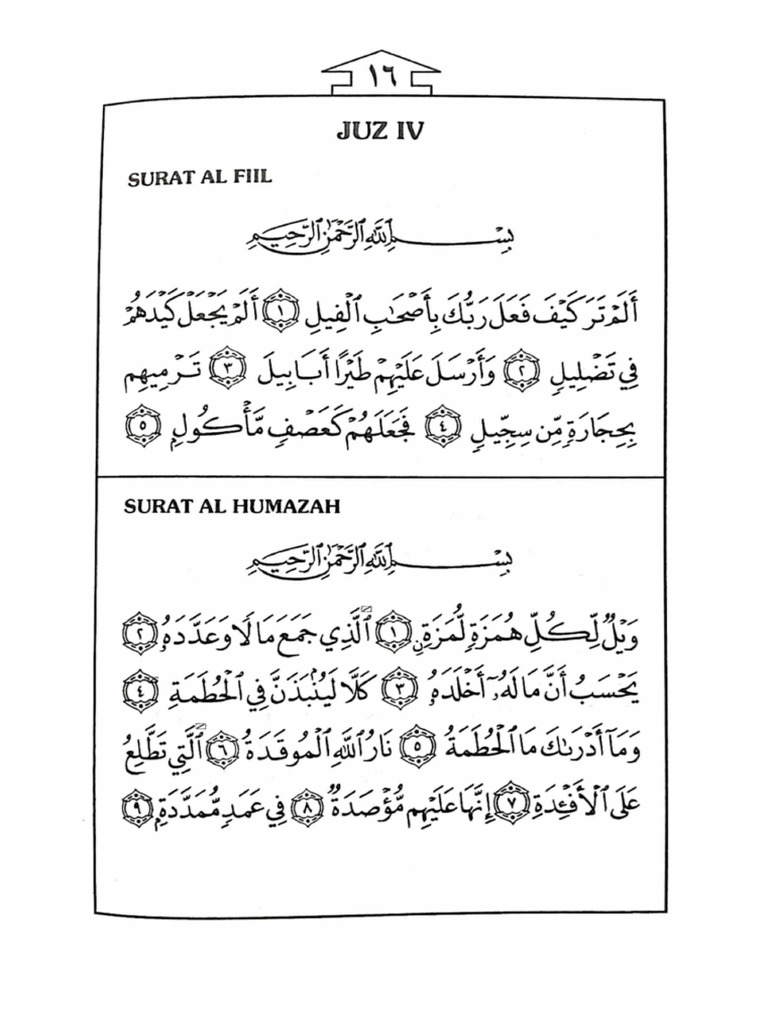 ١٦
JUZ IV
SURAT AL FIIL
بِسْمِ اللَّهِ الرَّحْمَٰنِ الرَّحِيمِ
أَلَمْ تَرَ كَيْفَ فَعَلَ رَبُّكَ بِأَصْحَابِ الْفِيلِ ١ أَلَمْ يَجْعَلْ كَيْدَهُمْ
فِي تَضْلِيلٍ ٢ وَأَرْسَلَ عَلَيْهِمْ طَيْرًا أَبَابِيلَ ٣ تَرْمِيهِم
بِحِجَارَةٍ مِّن سِجِّيلٍ ٤ فَجَعَلَهُمْ كَعَصْفٍ مَّأْكُولٍ ٥
SURAT AL HUMAZAH
بِسْمِ اللَّهِ الرَّحْمَٰنِ الرَّحِيمِ
وَيْلٌ لِّكُلِّ هُمَزَةٍ لُّمَزَةٍ ١ الَّذِي جَمَعَ مَالًا وَعَدَّدَهُ ٢
يَحْسَبُ أَنَّ مَالَهُ أَخْلَدَهُ ٣ كَلَّا لَيُنبَذَنَّ فِي الْحُطَمَةِ ٤
وَمَا أَدْرَىٰكَ مَا الْحُطَمَةُ ٥ نَارُ اللَّهِ الْمُوقَدَةُ ٦ الَّتِي تَطَّلِعُ
عَلَى الْأَفْئِدَةِ ٧ إِنَّهَا عَلَيْهِم مُّؤْصَدَةٌ ٨ فِي عَمَدٍ مُّمَدَّدَةٍ ٩